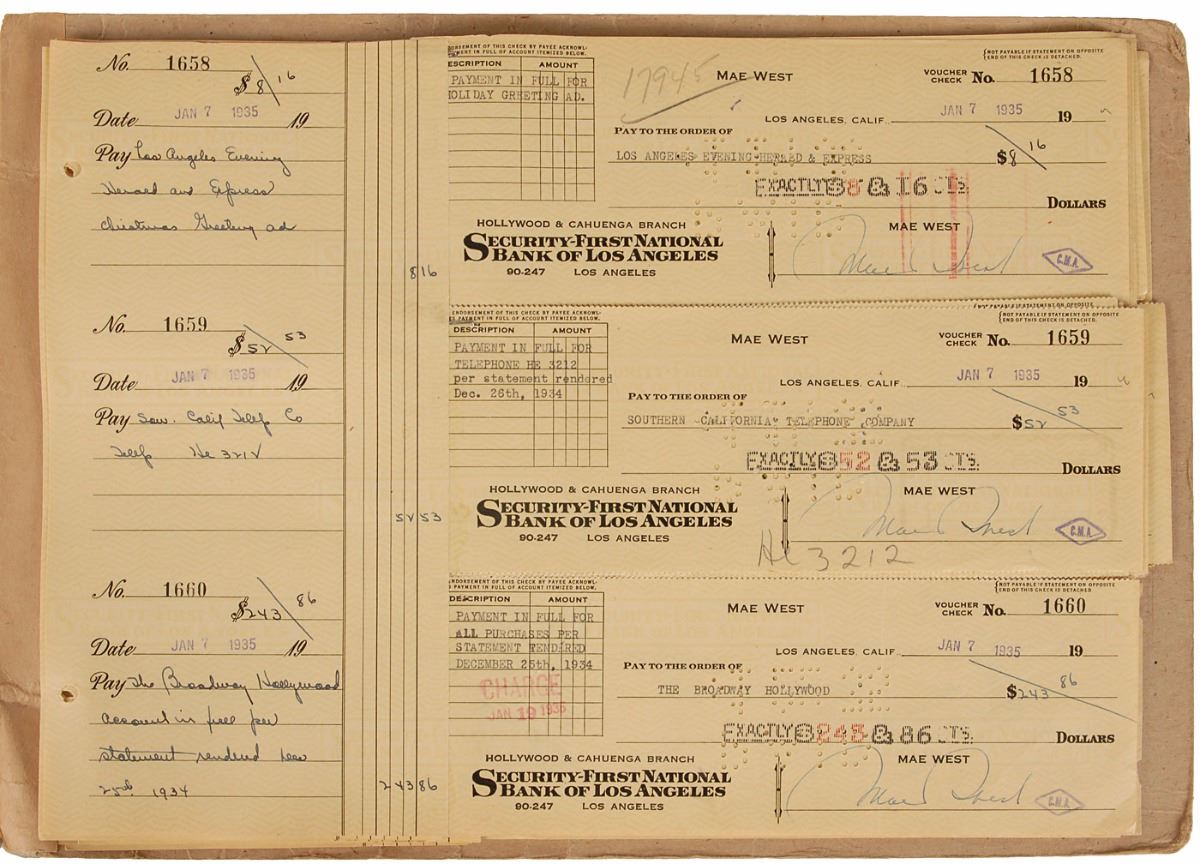 No. 1658
$8/16
Date JAN 7 1935 19
Pay Los Angeles Evening
Herald and Express
Christmas Greeting ad
8 16
ENDORSEMENT OF THIS CHECK BY PAYEE ACKNOWL-
MENT IN FULL OF ACCOUNT ITEMIZED BELOW.
ESCRIPTION AMOUNT
PAYMENT IN FULL FOR
HOLIDAY GREETING AD.
17945
MAE WEST
{NOT PAYABLE IF STATEMENT ON OPPOSITE
END OF THIS CHECK IS DETACHED.
VOUCHER CHECK No. 1658
LOS ANGELES, CALIF. JAN 7 1935 19
PAY TO THE ORDER OF
LOS ANGELES EVENING HERALD & EXPRESS $8/16
EXACTLY $8 & 16 CTS
DOLLARS
HOLLYWOOD & CAHUENGA BRANCH
SECURITY-FIRST NATIONAL
BANK OF LOS ANGELES
90-247 LOS ANGELES
MAE WEST
Mae West
C.M.A.
No. 1659
$52/53
Date JAN 7 1935 19
Pay Sou. Calif Telep Co
Telep He 3212
52 53
ENDORSEMENT OF THIS CHECK BY PAYEE ACKNOWL-
ES PAYMENT IN FULL OF ACCOUNT ITEMIZED BELOW.
DESCRIPTION AMOUNT
PAYMENT IN FULL FOR
TELEPHONE HE 3212
per statement rendered
Dec. 26th, 1934
MAE WEST
{NOT PAYABLE IF STATEMENT ON OPPOSITE
END OF THIS CHECK IS DETACHED.
VOUCHER CHECK No. 1659
LOS ANGELES, CALIF. JAN 7 1935 19
PAY TO THE ORDER OF
SOUTHERN CALIFORNIA TELEPHONE COMPANY $52/53
EXACTLY $52 & 53 CTS
DOLLARS
HOLLYWOOD & CAHUENGA BRANCH
SECURITY-FIRST NATIONAL
BANK OF LOS ANGELES
90-247 LOS ANGELES
MAE WEST
Mae West
C.M.A.
He 3212
No. 1660
$243/86
Date JAN 7 1935 19
Pay The Broadway Hollywood
account in full per
statement rendered Dec
25th 1934
243 86
ENDORSEMENT OF THIS CHECK BY PAYEE ACKNOWL-
S PAYMENT IN FULL OF ACCOUNT ITEMIZED BELOW.
DESCRIPTION AMOUNT
PAYMENT IN FULL FOR
ALL PURCHASES PER
STATEMENT RENDIRED
DECEMBER 25th, 1934
CHARGE
JAN 19 1935
MAE WEST
{NOT PAYABLE IF STATEMENT ON OPPOSITE
END OF THIS CHECK IS DETACHED
VOUCHER CHECK No. 1660
LOS ANGELES, CALIF. JAN 7 1935 19
PAY TO THE ORDER OF
THE BROADWAY HOLLYWOOD $243/86
EXACTLY $243 & 86 CTS
DOLLARS
HOLLYWOOD & CAHUENGA BRANCH
SECURITY-FIRST NATIONAL
BANK OF LOS ANGELES
90-247 LOS ANGELES
MAE WEST
Mae West
C.M.A.